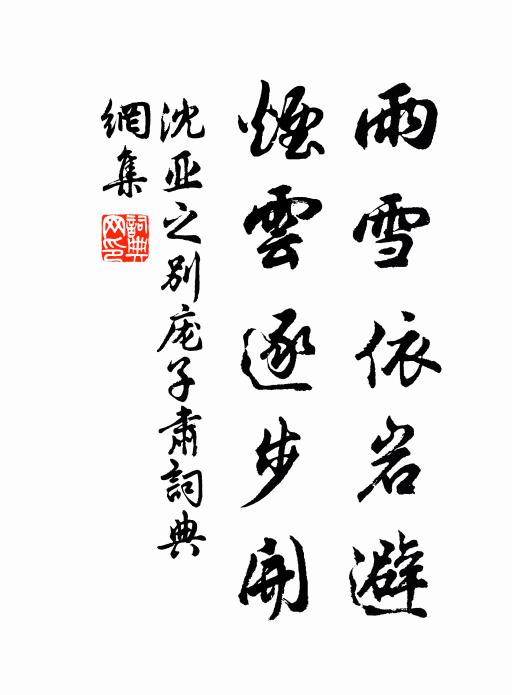 雨雪依岩避
煙雲逐步開
沈亚之别庞子肃詞典
網集
詞典网印